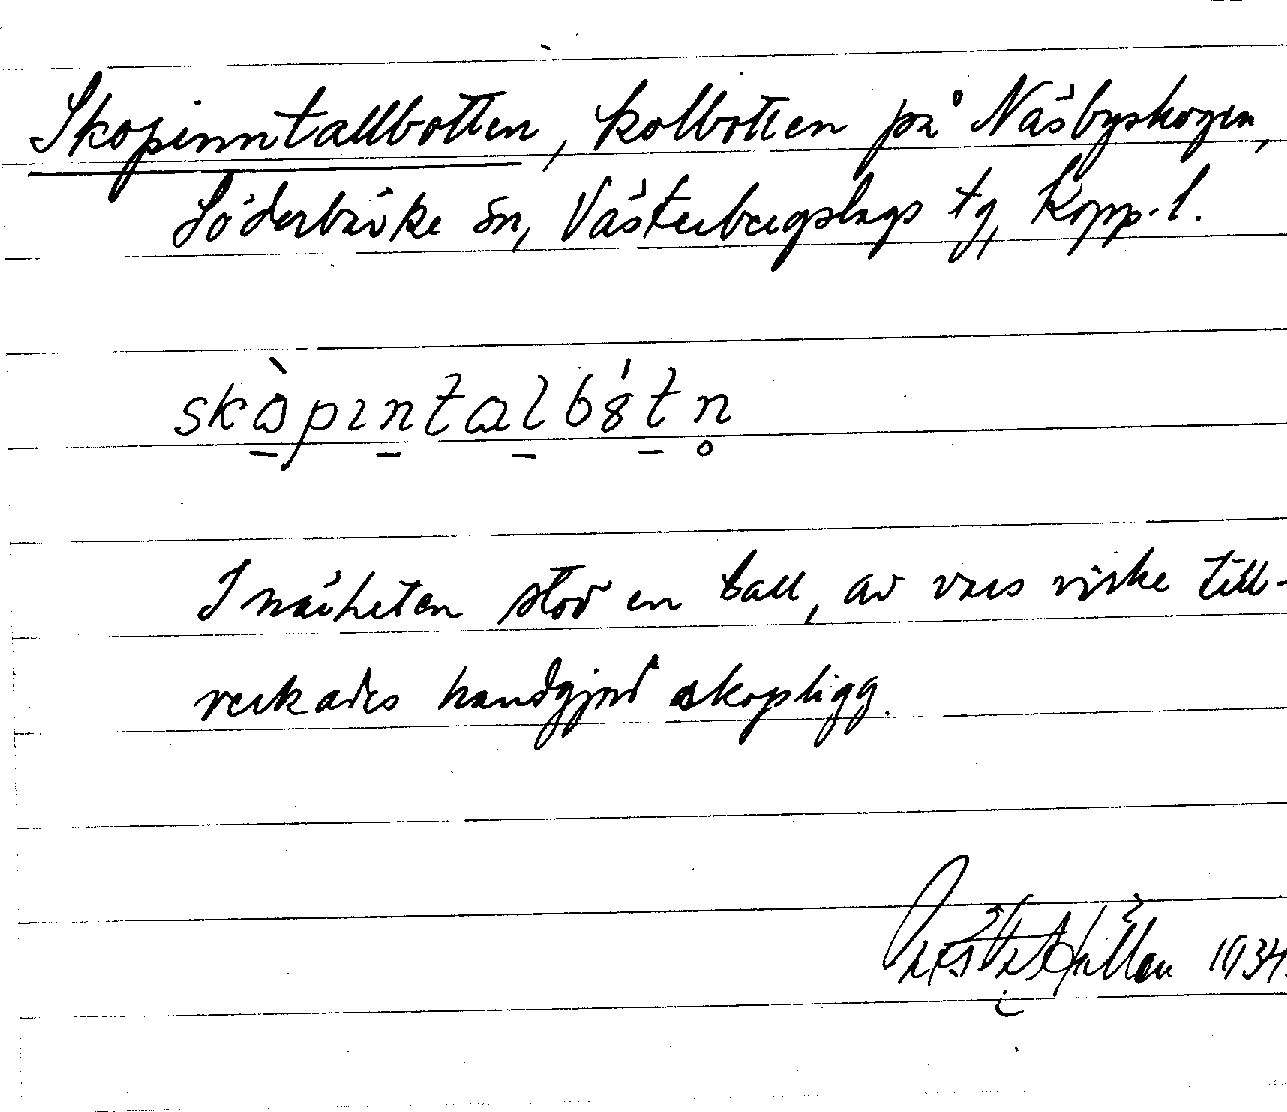 Skopinntallbotten, kolbotten på Näsbyskogen,
Söderbärke sn, Västerbergslags tg, Kopp. l.
skòpıntalbótn̥
I närheten stod en tall, av vars virke till-
verkades handgjord skopligg.
1934.